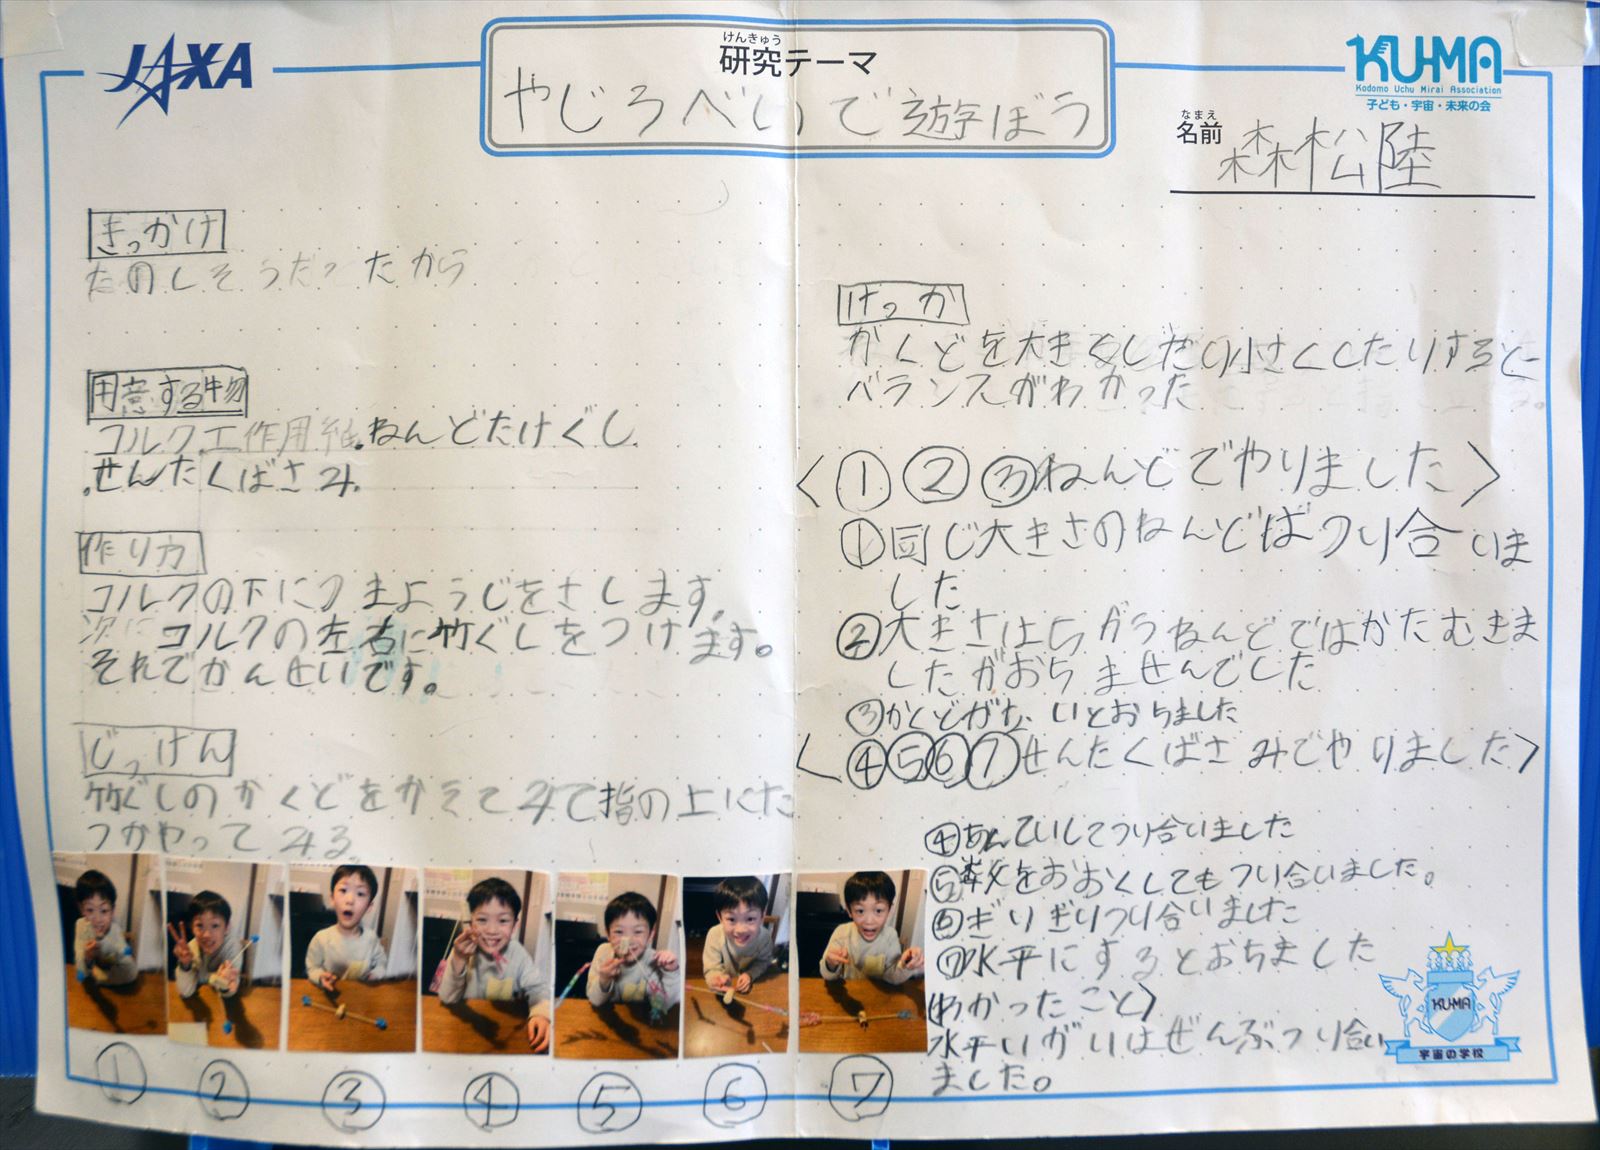 JAXA
けんきゅう
研究テーマ
やじろべいで遊ぼう
KU-MA
Kodomo Uchu Mirai Association
子ども・宇宙・未来の会
なまえ
名前
森松陸
きっかけ
たのしそうだったから
用意する物
コルク工作用紙.ねんどたけぐし
.せんたくばさみ.
作り方
コルクの下につまようじをさします。
次にコルクの左右に竹ぐしをつけます。
それでかんせいです。
じっけん
竹ぐしのかくどをかえてみて指の上にた
つかやってみる
①
②
③
④
⑤
⑥
⑦
けっか
かくどを大きくしたり小さくしたりすると
バランスがわかった
〈①②③ねんどでやりました〉
①同じ大きさのねんどはつり合いま
した
②大きさはちがうねんどではかたむきま
したがおちませんでした
③かくどがないとおちました
〈④⑤⑥⑦せんたくばさみでやりました〉
④あんていしてつり合いました
⑤数をおおくしてもつり合いました。
⑥ぎりぎりつり合いました
⑦水平にするとおちました
〈わかったこと〉
水平いがいはぜんぶつり合い
ました。
KU-MA
宇宙の学校